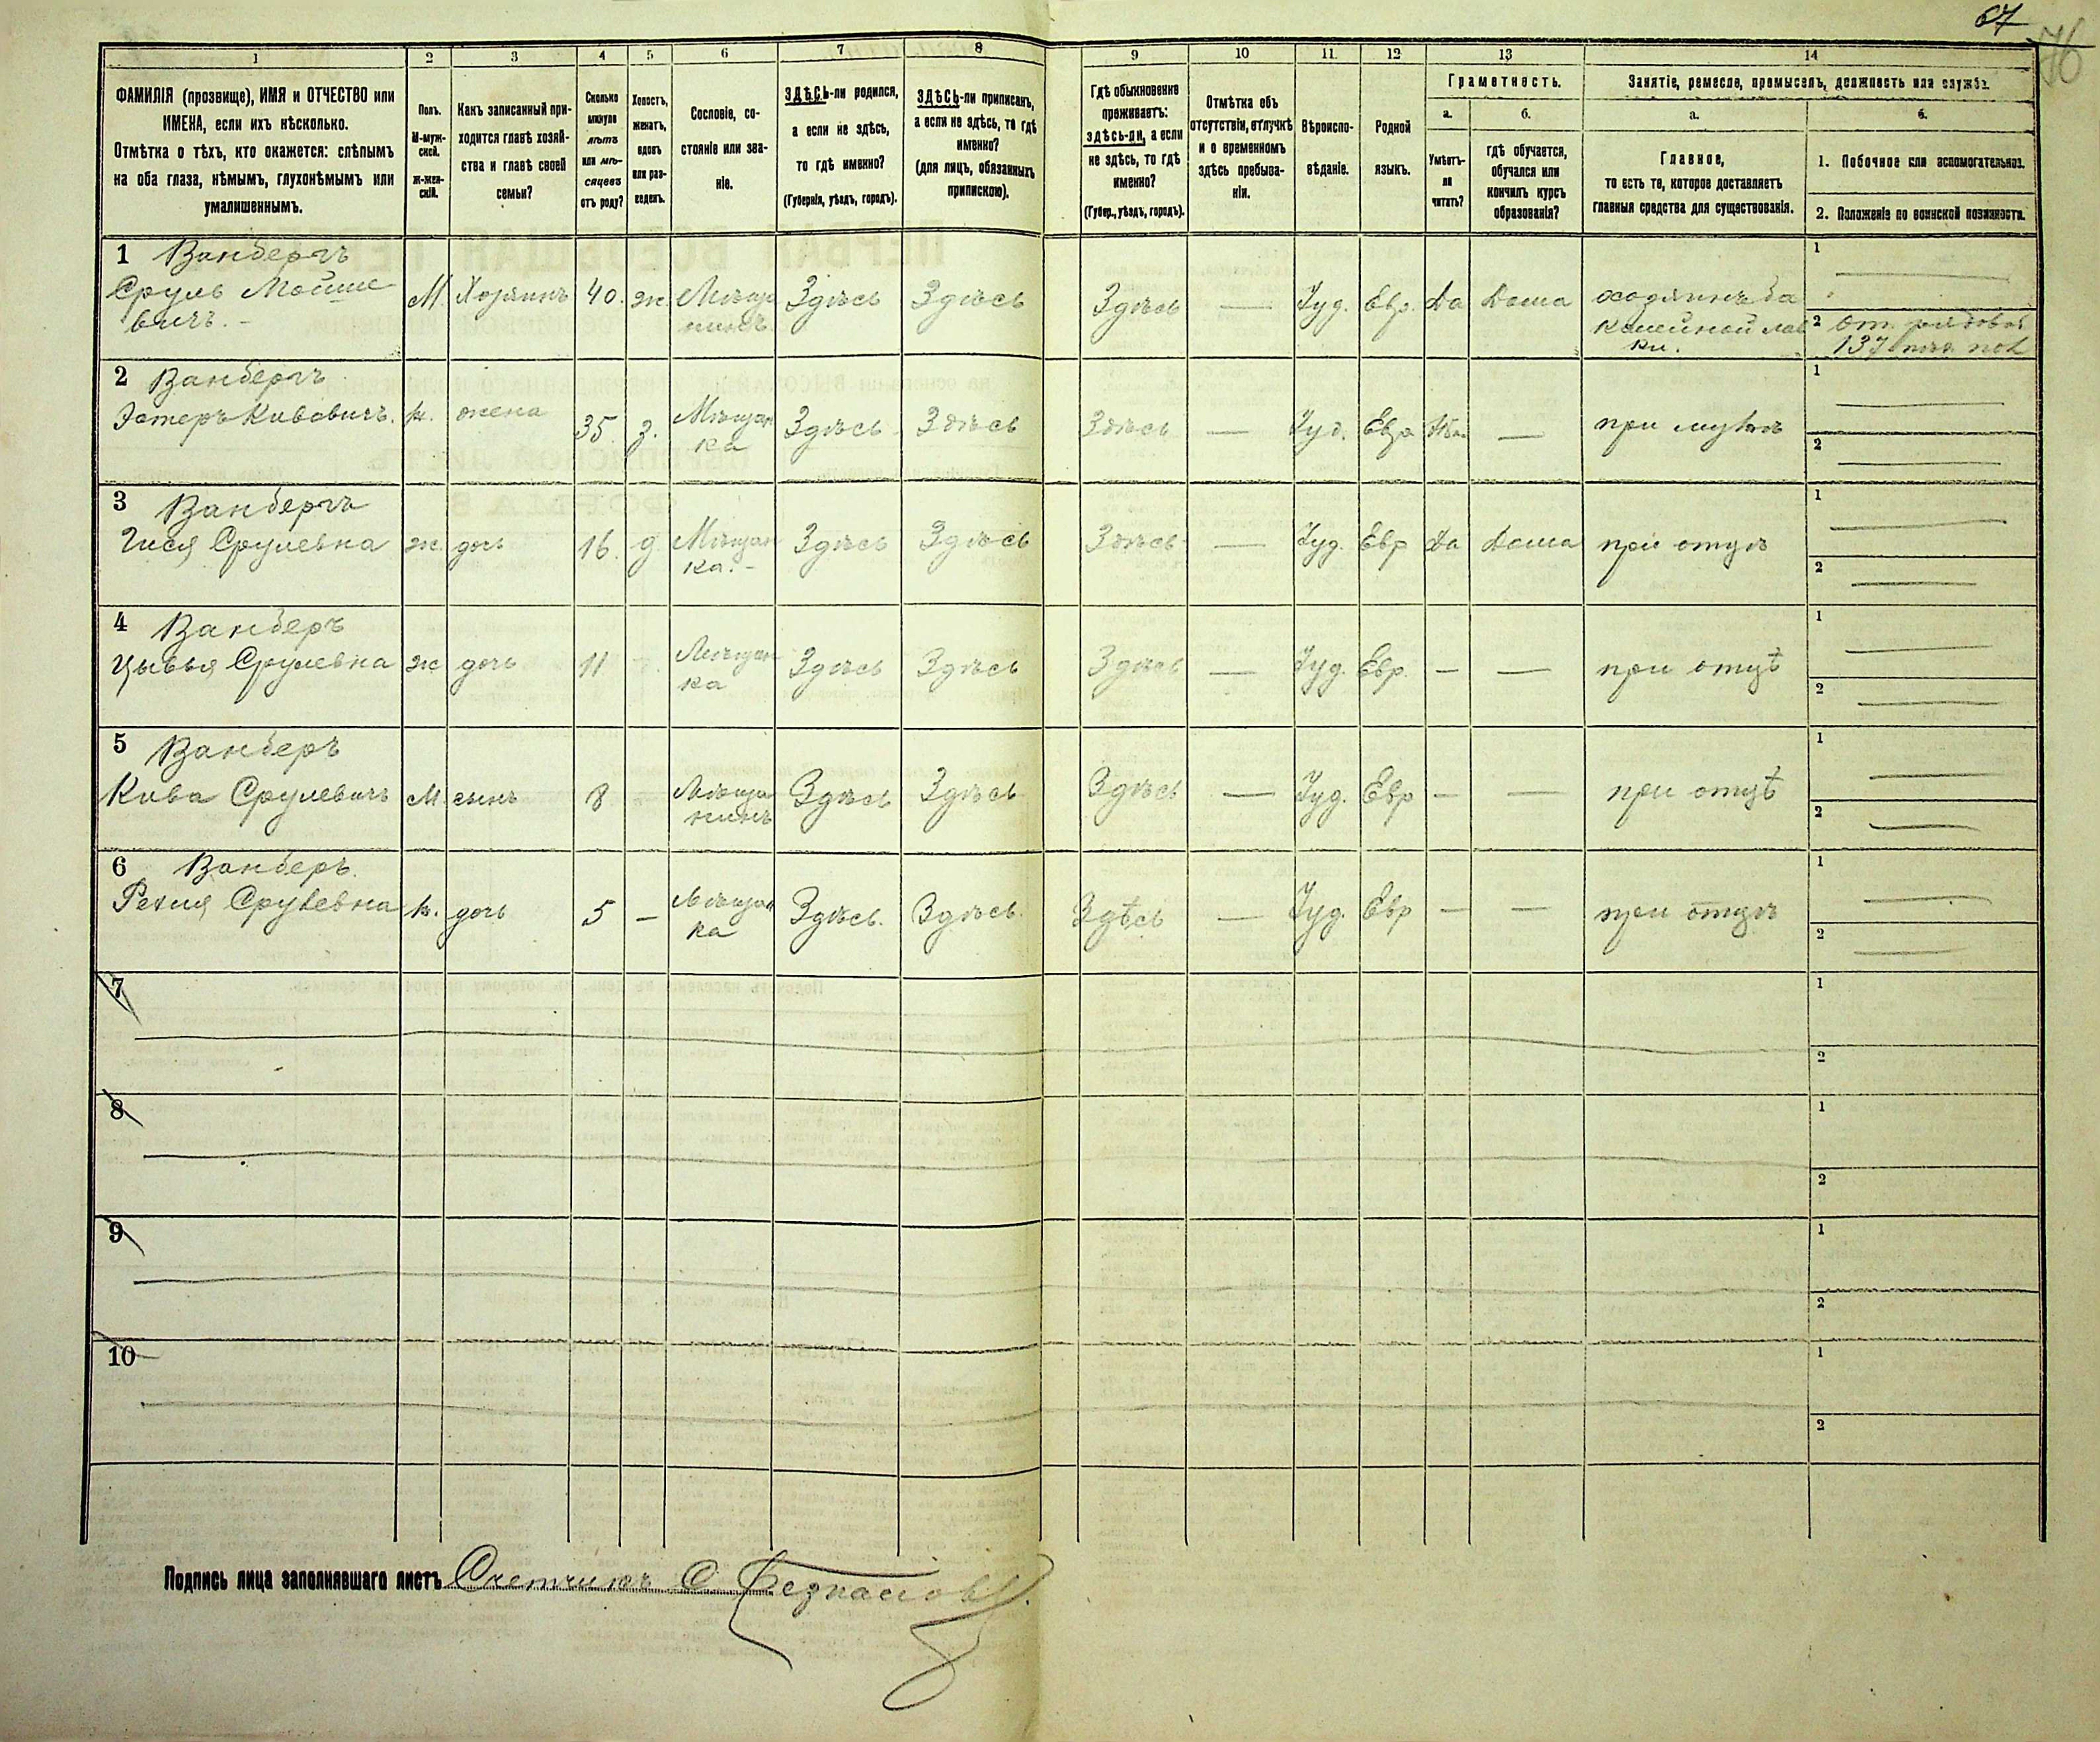 67
76
1 2 3 4 5 6 7 8 9 10 11. 12 13 14
ФАМИЛІЯ (прозвище), ИМЯ и ОТЧЕСТВО или
ИМЕНА, если ихъ нѣсколько.
Отмѣтка о тѣхъ, кто окажется: слѣпымъ
на оба глаза, нѣмымъ, глухонѣмымъ или
умалишеннымъ.
Полъ.
М-муж-
ской.
ж-жен-
скій.
Какъ записанный при-
ходится главѣ хозяй-
ства и главѣ своей
семьи?
Сколько
минуло
лѣтъ
или мѣ-
сяцевъ
отъ роду?
Холостъ,
женатъ,
вдовъ
или раз-
веденъ.
Сословіе, со-
стояніе или зва-
ніе.
ЗДѢСЬ-ли родился,
а если не здѣсь,
то гдѣ именно?
(Губернія, уѣздъ, городъ).
ЗДѢСЬ-ли приписанъ,
а если не здѣсь, то гдѣ
именно?
(для лицъ, обязанныхъ
припискою).
Гдѣ обыкновенно
проживаетъ:
здѣсь-ли, а если
не здѣсь, то гдѣ
именно?
(Губер., уѣздъ, городъ).
Отмѣтка объ
отсутствіи, отлучкѣ
и о временномъ
здѣсь пребыва-
ніи.
Вѣроиспо-
вѣданіе.
Родной
языкъ.
Грамотность.
а. б.
Умѣетъ-
ли
читать?
гдѣ обучается,
обучался или
кончилъ курсъ
образованія?
Занятіе, ремесло, промыселъ, должность или служба.
а. б.
Главное,
то есть то, которое доставляетъ
главныя средства для существованія.
1. Побочное или вспомогательное.
2. Положеніе по воинской повинности.
1 Ванбергъ
Сруль Мойше
вичъ. М. Хозяинъ 40. ж. Мѣща
нинъ Здѣсь Здѣсь Здѣсь — Іуд. Евр. Да Дома хозяинъ ба
калейной лав
ки.
1
2 От. рядовой
137 пѣх. пол
2 Ванбергъ
Эстеръ Кивовичъ. ж. жена 35. з. Мѣщан
ка Здѣсь Здѣсь Здѣсь — Іуд. Евр — при мужѣ
1
2
3 Ванбергъ
Гися Срулевна ж. дочь 16. д Мѣщан
ка. Здѣсь Здѣсь Здѣсь — Іуд. Евр Да Дома при отцѣ
1
2
4 Ванберъ
Цывья Срулевна ж дочь 11 Мѣщан
ка Здѣсь Здѣсь Здѣсь — Іуд. Евр. — — при отцѣ
1
2
5 Ванберъ
Кива Срулевичъ М сынъ 8 Мѣща
нинъ Здѣсь Здѣсь Здѣсь — Іуд. Евр — — при отцѣ
1
2
6 Ванберъ.
Срулевна ж. дочь 5 — Мѣщан
ка Здѣсь. Здѣсь. Здѣсь — Іуд. Евр — — при отцѣ
1
2
7
1
2
8
1
2
9
1
2
10
1
2
Подпись лица заполнявшаго листъ Счетчикъ С.